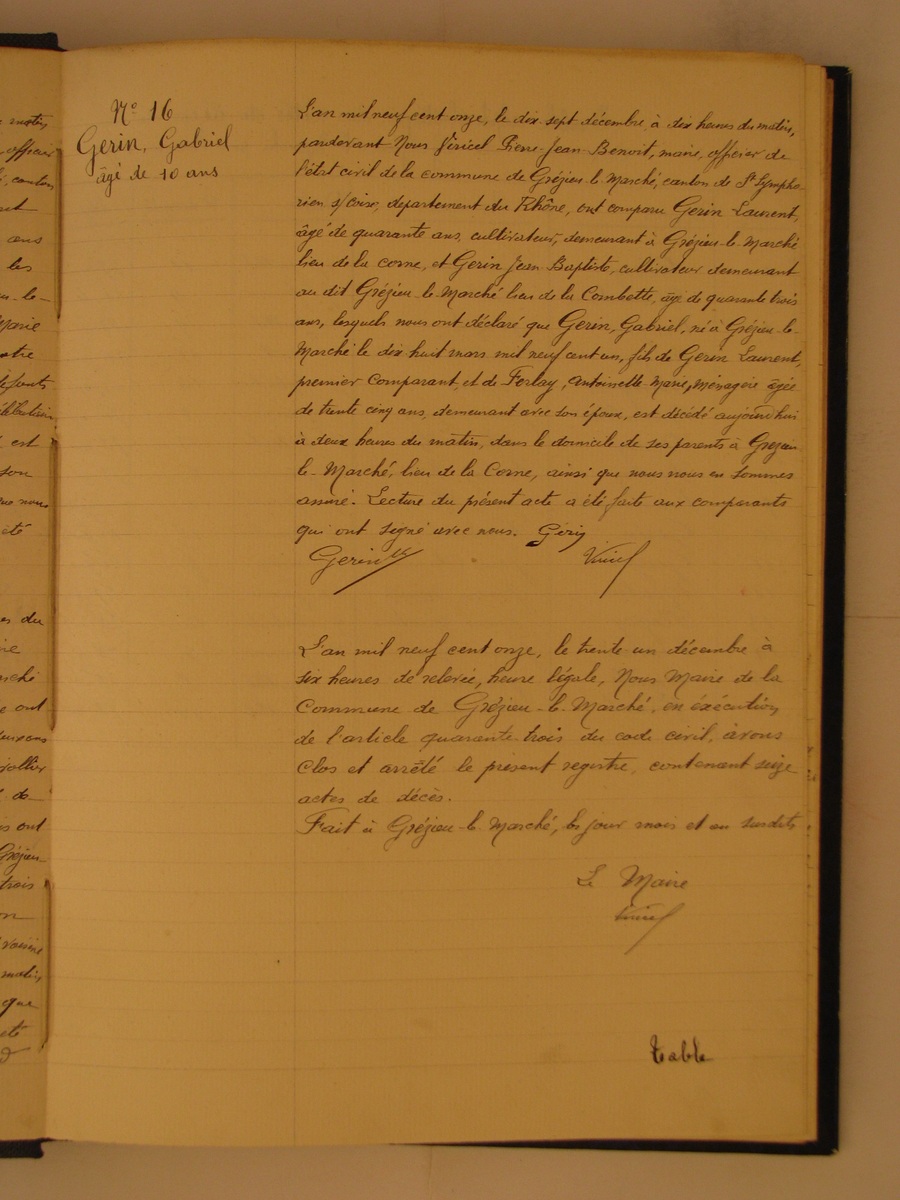 N° 16
Gerin, Gabriel
âgé de 10 ans
L'an mil neuf cent onze, le dix-sept décembre, à dix heures du matin,
pardevant Nous Viricel Pierre-Jean-Benoit, maire, officier de
l'état civil de la commune de Grézieu-le-Marché, canton de St Sympho-
rien s/Coise, département du Rhône, ont comparu Gerin Laurent,
âgé de quarante ans, cultivateur, demeurant à Grézieu-le-Marché
lieu de la Corne, et Gerin Jean-Baptiste, cultivateur demeurant
au dit Grézieu-le-Marché lieu de la Combette, âgé de quarante trois
ans, lesquels nous ont déclaré que Gerin, Gabriel, né à Grézieu-le-
Marché le dix huit mars mil neuf cent un, fils de Gerin Laurent,
premier comparant, et de Ferlay, Antoinette-Marie, Ménagère âgée
de trente cinq ans, demeurant avec son époux, est décédé aujourd'hui
à deux heures du matin, dans le domicile de ses parents à Grézieu
le-Marché, lieu de la Corne, ainsi que nous nous en sommes
assuré. Lecture du présent acte a été faite aux comparants
qui ont signé avec nous. Gerin
Gerin Viricel
L'an mil neuf cent onze, le trente un décembre à
six heures de relevée, heure légale, Nous Maire de la
Commune de Grézieu-le-Marché, en exécution
de l'article quarante-trois du code civil, avons
clos et arrêté le présent registre, contenant seize
actes de décès.
Fait à Grézieu-le-Marché, les jour mois et an susdits
Le Maire
Viricel
Table